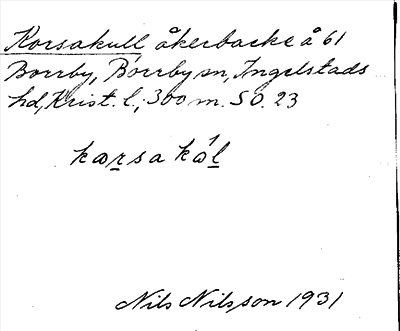 Korsakull åkerbacke å 61
Borrby, Borrby sn, Ingelstads
hd, Krist. l., 300 m. S O. 23
kɷrsa kál
Nils Nilsson 1931